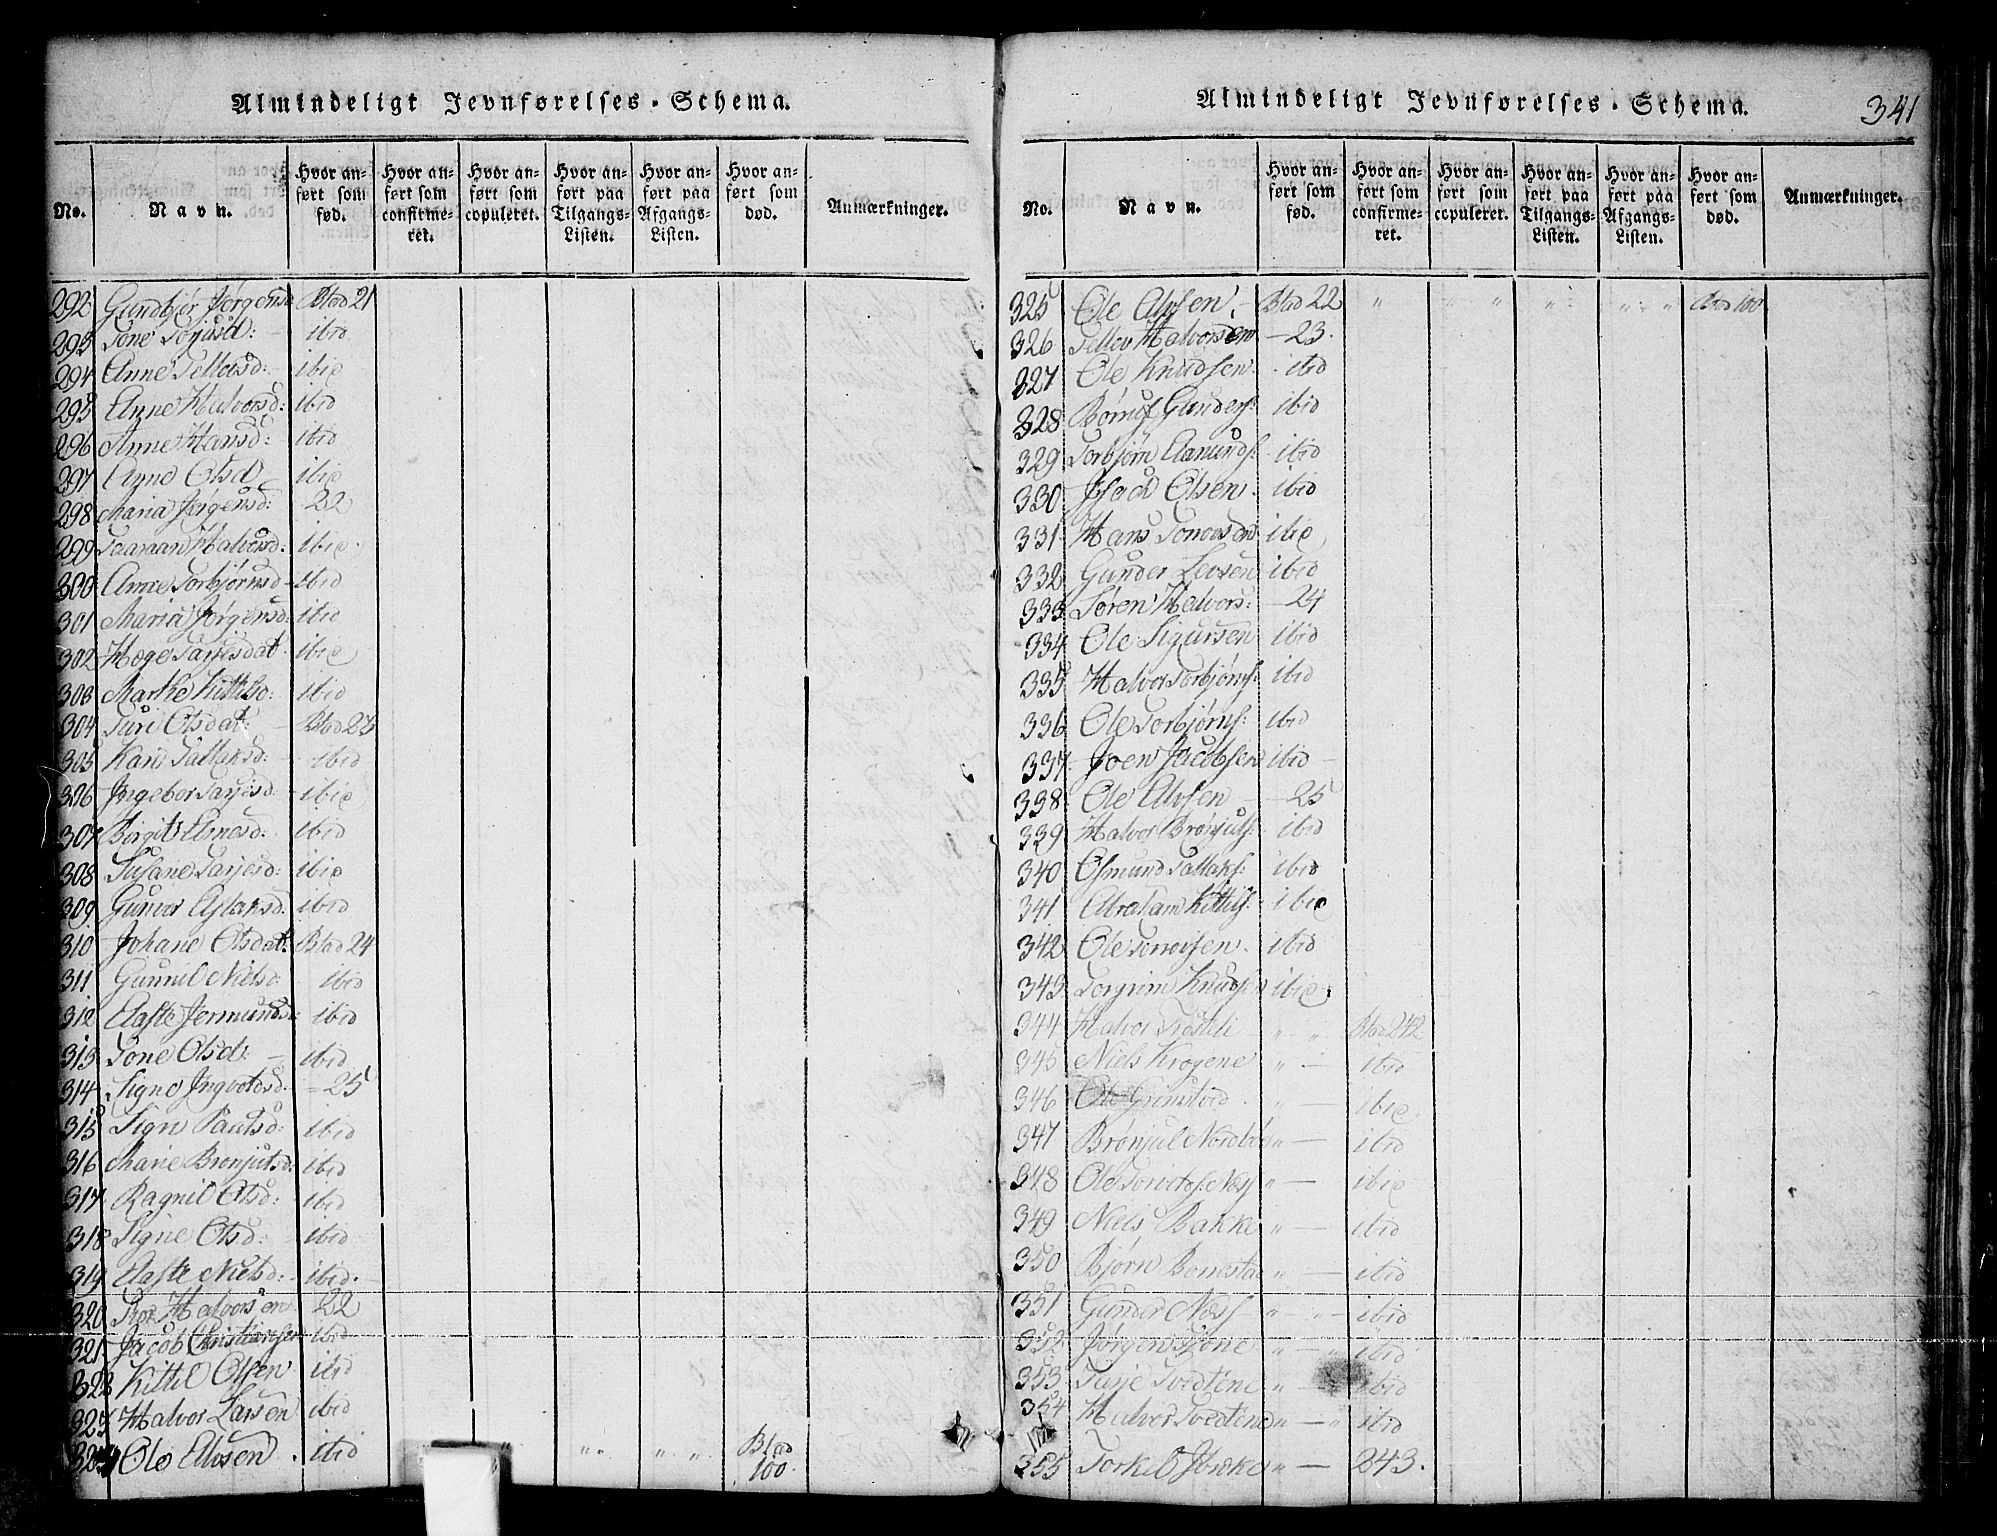 Almindeligt Jevnførelses-Schema.
No. Navn. Hvor anført som fød. Hvor anført som confirmeret. Hvor anført som copuleret. Hvor anført paa Tilgangs-Listen. Hvor anført paa Afgangs-Listen. Hvor anført som død. Anmærkninger.
292 Gundbjør Jørgensd Blad 21
293 Tone d: ibid
294 Anne Tellefsd: ibid
295 Anne Halvorsd: ibid
296 Anne Hansd: ibid
297 Anne Olsd ibid
298 Maria Jørgensd: 22
299 Halvorsd. ibid
300 Anne Torbjørnsd ibid
301 Maria Jørgensd: ibid
302 Hæge Tarjesdat ibid
303 Marthe Kittilsd: ibid
304 Turi Olsdat: Blad 23
305 Kari Tallaksd: ibid
306 Ingebor Tarjesd: ibid
307 Birgit d: ibid
308 Susane Tarjesd: ibid
309 Gunvor Aslaksd: ibid
310 Johane Olsdat: Blad 24
311 Gunnil Nielsd: ibid
312 Aaste Jermundsd: ibid
313 Tone Olsd: ibid
314 Signe Ingvoldsd: - 25
315 Sign Paulsd: ibid
316 Marie Brønjulsd: ibid
317 Ragnil Olsd: ibid
318 Signe Olsd: ibid
319 Aaste Nielsd: ibid.
320 Halvorsen 22
321 Jacob Christiansen ibid
322 Kittil Olsen ibid
323 Halvor Larsen ibid
324 Ole Alvsen. ibid " " " " " Blad 100.
Almindeligt Jevnførelses-Schema. 341
No. Navn. Hvor anført som fød. Hvor anført som confirmeret. Hvor anført som copuleret. Hvor anført paa Tilgangs-Listen. Hvor anført paa Afgangs-Listen. Hvor anført som død. Anmærkninger.
325 Ole Alvsen Blad 22 " " " " " " Blad 100
326 Tellev Halvorsen - 23.
327 Ole Knudsen ibid
328 Gunders: ibid
329 Torbjørn Aamunds: ibid
330 Isach Olsen ibid
331 Hans ibid
332 Gunder Levsen ibid
333 Søren Halvors: - 24
334 Ole Sigursen ibid
335 Halvor Torbjørns: ibid
336 Ole Torbjørns: ibid
337 Joen Jacobsen ibid -
338 Ole Alvsen - 25
339 Halvor Brønjuls: ibid
340 Osmund Tallaks: ibid
341 Abraham Kittils: ibid
342 Ole ibid
343 Torgrim Knudsen ibid
344 Halvor " - " Blad 242
345 Niels Krogene " - ibid
346 Ole Grimstved " - ibid
347 Brønjul Nordbø " - ibid
348 Ole Næss " - ibid
349 Niels Bakke " - ibid
350 Bjørn Bonestad " - ibid
351 Gunder Næss " " - ibid
352 Jørgen " - " ibid
353 Tarje Tvedtene " - ibid
354 Halvor Tvedtene " - " ibid
355 Torkel " - 243.